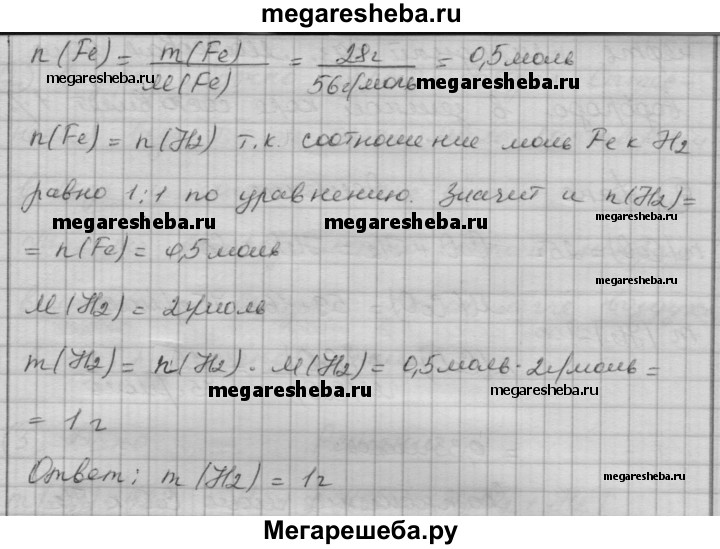 megaresheba.ru
n(Fe) = m(Fe) / M(Fe) = 28г / 56г/моль = 0,5 моль
megaresheba.ru
megaresheba.ru
n(Fe) = n(H2) т.к. соотношение моль Fe к H2
равно 1:1 по уравнению. Значит и n(H2) =
megaresheba.ru megaresheba.ru megaresheba.ru
= n(Fe) = 0,5 моль
megaresheba.ru
M(H2) = 2г/моль
m(H2) = n(H2) · M(H2) = 0,5 моль · 2г/моль =
megaresheba.ru megaresheba.ru
= 1 г
Ответ: m(H2) = 1г
megaresheba.ru
Мегарешеба.ру